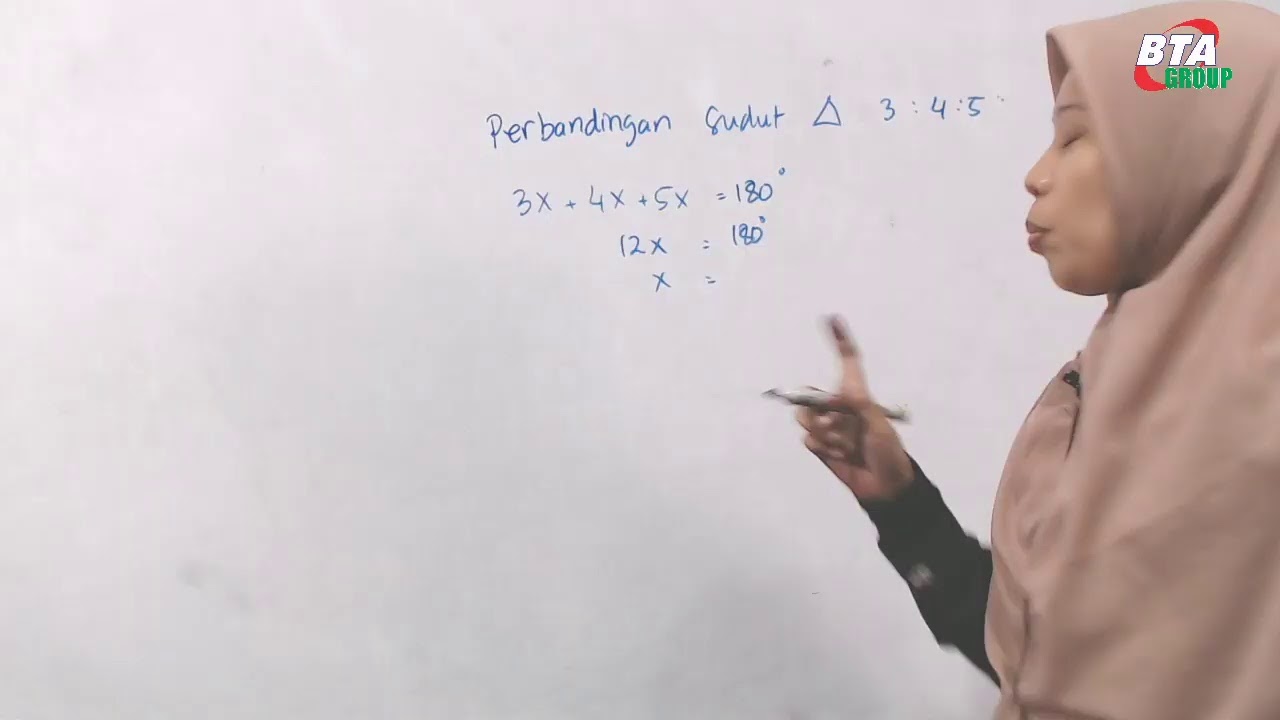 BTA
GROUP
Perbandingan Sudut △ 3 : 4 : 5
3x + 4x + 5x = 180°
12x = 180°
x =